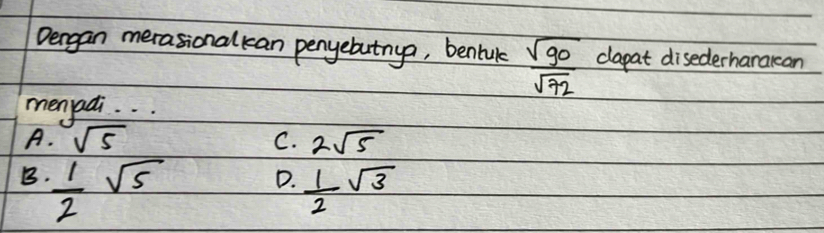 Dengan merasionalkan penyebutnya, bentuk √90/√72 dapat disederhanakan
menjadi...
A. √5 C. 2√5
B. 1/2 √5 D. 1/2 √3